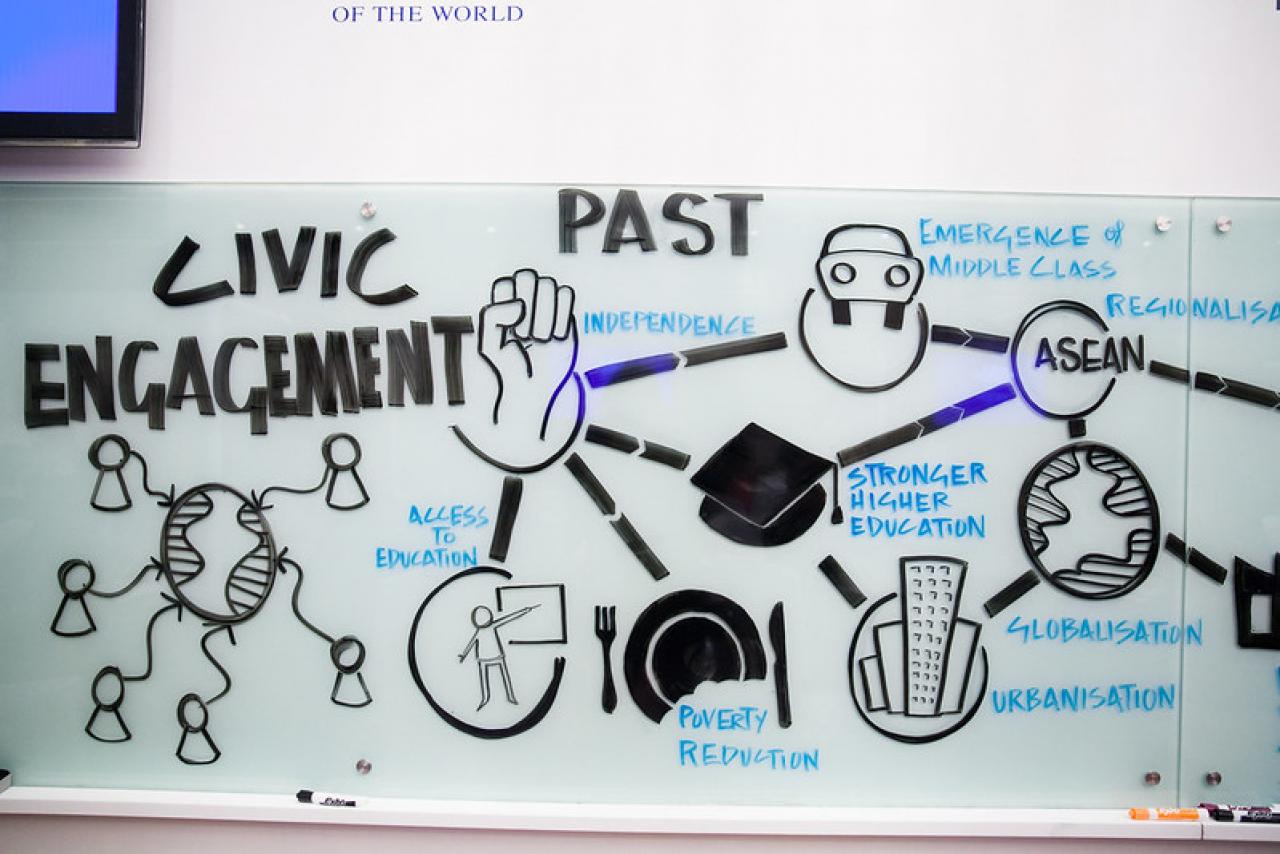 OF THE WORLD
PAST
CIVIC
ENGAGEMENT
INDEPENDENCE
EMERGENCE of
MIDDLE CLASS
ASEAN
STRONGER
HIGHER
EDUCATION
ACCESS
TO
EDUCATION
GLOBALISATION
URBANISATION
POVERTY
REDUCTION